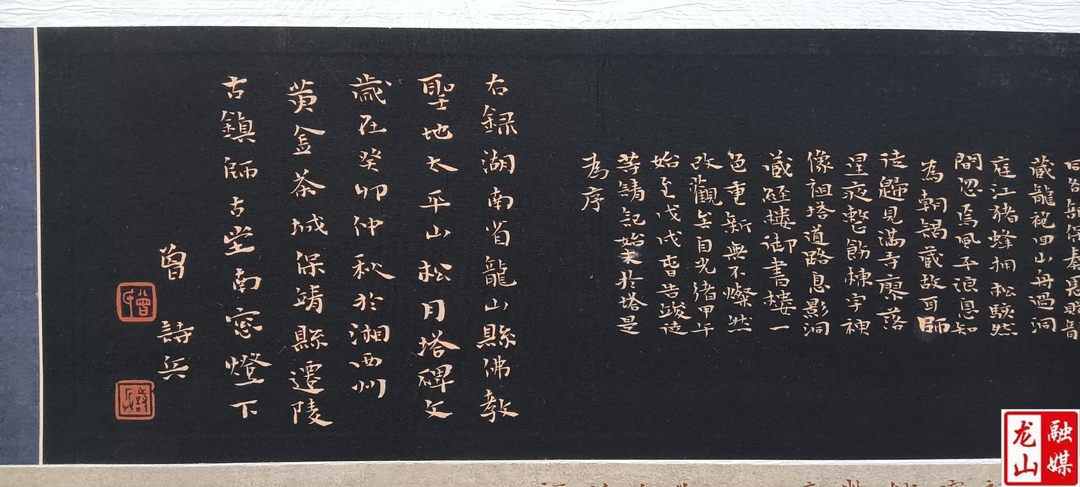 藏龍袍回山舟過洞
庭江豬蜂相松
間忽烏風平浪息知
為朝謁藏故可師
徒歸見滿寺廖落
星夜整飭棟宇神
像祖塔道路息影洞
藏經樓御書樓一
色重新無不燦然
改觀矣自光緒甲午
始至戊戌春告竣
等請記始末於塔是
為序
右録湖南省龍山縣佛教
聖地太平山松月塔碑文
歲在癸卯仲秋於湘西州
黄金茶城保靖縣遷陵
古鎮師古堂南窓燈下
曾 詩兵
龙山
融媒